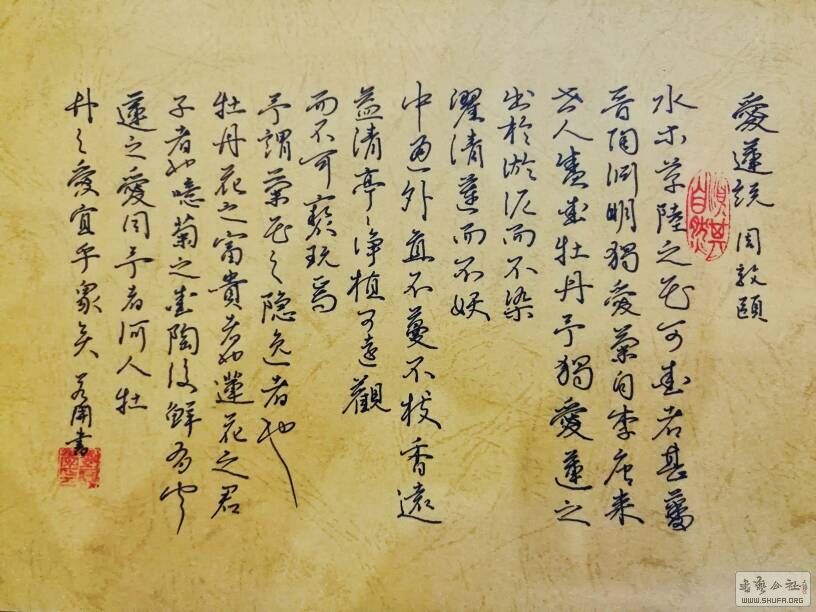 愛蓮説 周敦頤
順其自然
水木草陸之花可愛者甚蕃
晉陶淵明獨愛菊自李唐来
世人盛愛牡丹予獨愛蓮之
出於淤泥而不染
濯清蓮而不妖
中通外直不蔓不枝香遠
益清亭々淨植可遠觀
而不可褻玩焉
予謂菊花之隐逸者也
牡丹花之富貴者也蓮花之君
子者也噫菊之愛陶後鮮有聞
蓮之愛同予者何人牡
丹之愛宜乎衆矣 書
書藝公社
WWW.SHUFA.ORG